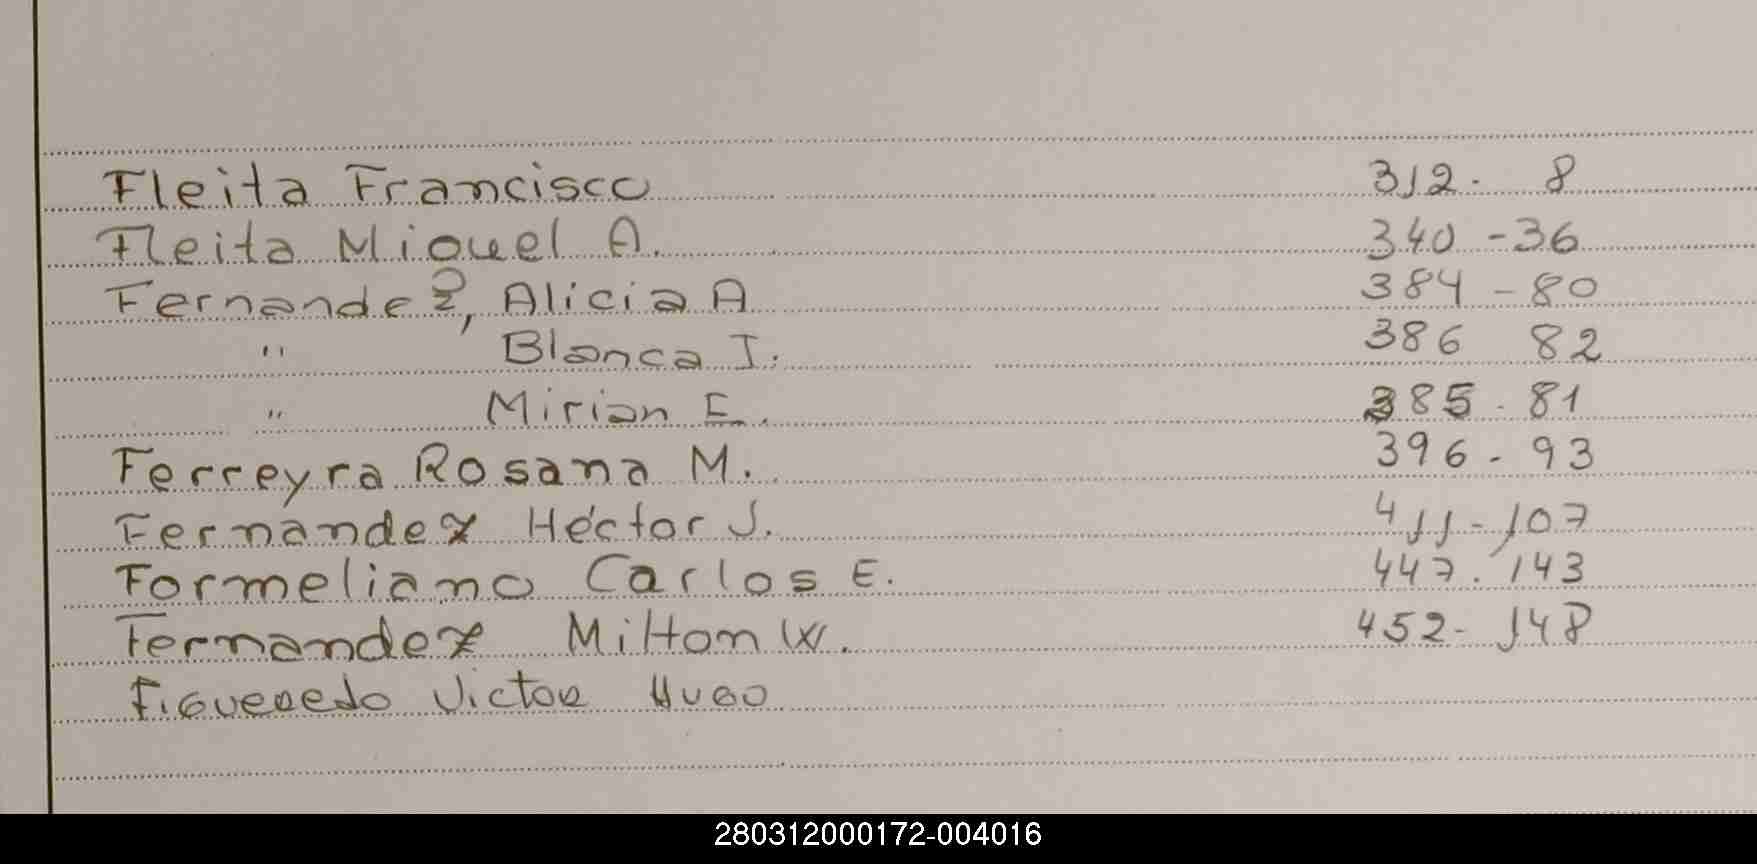 Fleita Francisco 312. 8
Fleita Miguel A. 340 - 36
Fernandez, Alicia A 384 - 80
" Blanca I. 386 82
" Mirian E. 385 - 81
Ferreyra Rosana M. 396 - 93
Fernandez Héctor J. 411 - 107
Formeliano Carlos E. 447. 143
Fernandez Milton W. 452 - 148
Figueredo Victor Hugo
280312000172-004016